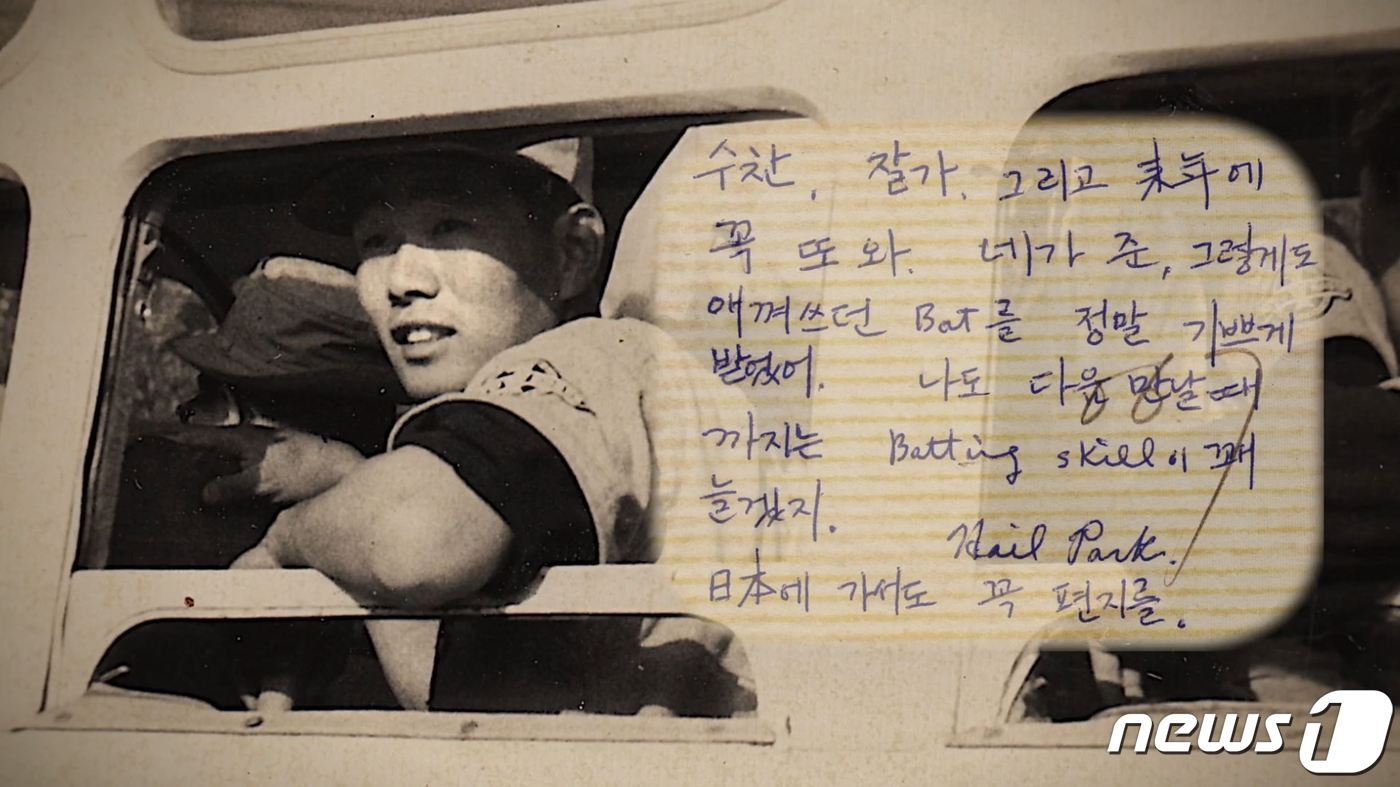 수찬, 잘가. 그리고 来年에
꼭 또 와. 네가 준, 그렇게도
애껴쓰던 Bat를 정말 기쁘게
받었어. 나도 다음 만날때
까지는 Batting skill이 꽤
늘겠지.
Hail Park.
日本에 가서도 꼭 편지를.
news1